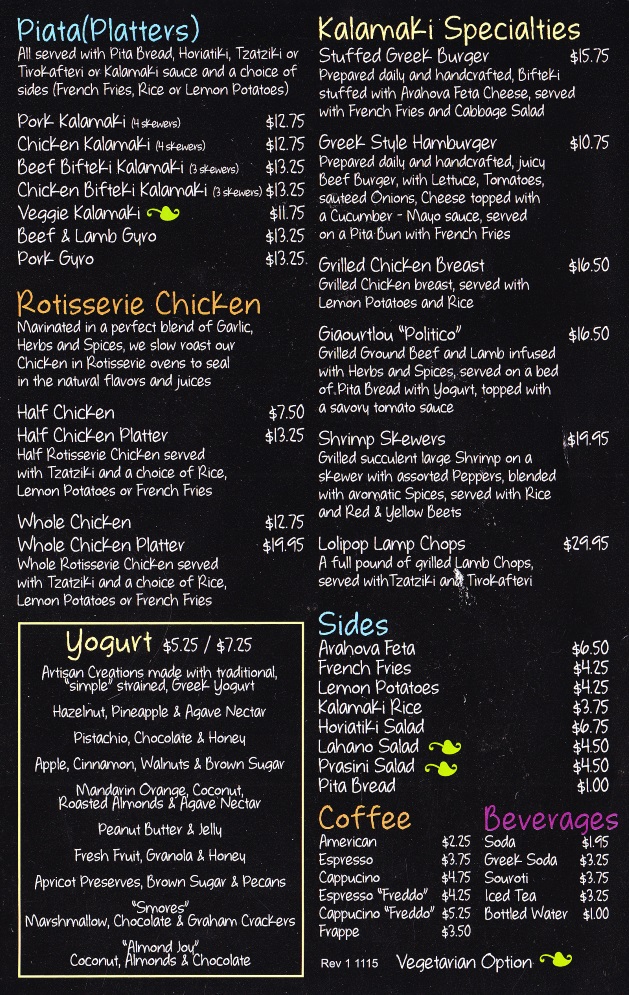 Piata(Platters)
All served with Pita Bread, Horiatiki, Tzatziki or
Tirokafteri or Kalamaki sauce and a choice of
sides (French Fries, Rice or Lemon Potatoes)
Pork Kalamaki (4 skewers) $12.75
Chicken Kalamaki (4 skewers) $12.75
Beef Bifteki Kalamaki (3 skewers) $13.25
Chicken Bifteki Kalamaki (3 skewers) $13.25
Veggie Kalamaki $11.75
Beef & Lamb Gyro $13.25
Pork Gyro $13.25
Rotisserie Chicken
Marinated in a perfect blend of Garlic,
Herbs and Spices, we slow roast our
Chicken in Rotisserie ovens to seal
in the natural flavors and juices
Half Chicken $7.50
Half Chicken Platter $13.25
Half Rotisserie Chicken served
with Tzatziki and a choice of Rice,
Lemon Potatoes or French Fries
Whole Chicken $12.75
Whole Chicken Platter $19.95
Whole Rotisserie Chicken served
with Tzatziki and a choice of Rice,
Lemon Potatoes or French Fries
Yogurt $5.25 / $7.25
Artisan Creations made with traditional,
"simple" strained, Greek Yogurt
Hazelnut, Pineapple & Agave Nectar
Pistachio, Chocolate & Honey
Apple, Cinnamon, Walnuts & Brown Sugar
Mandarin Orange, Coconut,
Roasted Almonds & Agave Nectar
Peanut Butter & Jelly
Fresh Fruit, Granola & Honey
Apricot Preserves, Brown Sugar & Pecans
"Smores"
Marshmallow, Chocolate & Graham Crackers
"Almond Joy"
Coconut, Almonds & Chocolate
Kalamaki Specialties
Stuffed Greek Burger $15.75
Prepared daily and handcrafted, Bifteki
stuffed with Arahova Feta Cheese, served
with French Fries and Cabbage Salad
Greek Style Hamburger $10.75
Prepared daily and handcrafted, juicy
Beef Burger, with Lettuce, Tomatoes,
sauteed Onions, Cheese topped with
a Cucumber - Mayo sauce, served
on a Pita Bun with French Fries
Grilled Chicken Breast $16.50
Grilled Chicken breast, served with
Lemon Potatoes and Rice
Giaourtlou "Politico" $16.50
Grilled Ground Beef and Lamb infused
with Herbs and Spices, served on a bed
of Pita Bread with Yogurt, topped with
a savory tomato sauce
Shrimp Skewers $19.95
Grilled succulent large Shrimp on a
skewer with assorted Peppers, blended
with aromatic Spices, served with Rice
and Red & Yellow Beets
Lolipop Lamp Chops $29.95
A full pound of grilled Lamb Chops,
served withTzatziki and Tirokafteri
Sides
Arahova Feta $6.50
French Fries $4.25
Lemon Potatoes $4.25
Kalamaki Rice $3.75
Horiatiki Salad $6.75
Lahano Salad $4.50
Prasini Salad $4.50
Pita Bread $1.00
Coffee
American $2.25
Espresso $3.75
Cappucino $4.75
Espresso "Freddo" $4.25
Cappucino "Freddo" $5.25
Frappe $3.50
Beverages
Soda $1.95
Greek Soda $3.25
Souroti $3.75
Iced Tea $3.25
Bottled Water $1.00
Rev 1 1115 Vegetarian Option